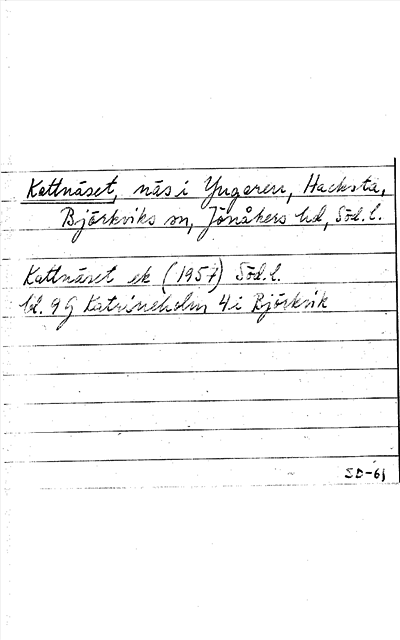 Kattnäset, näs i Yngaren, Hacksta,
Björkviks sn, Jönåkers hd, Söd. l.
Kattnäset ek (1957) Söd. l.
bl. 9G Katrineholm 4 i Björkvik
SD-61